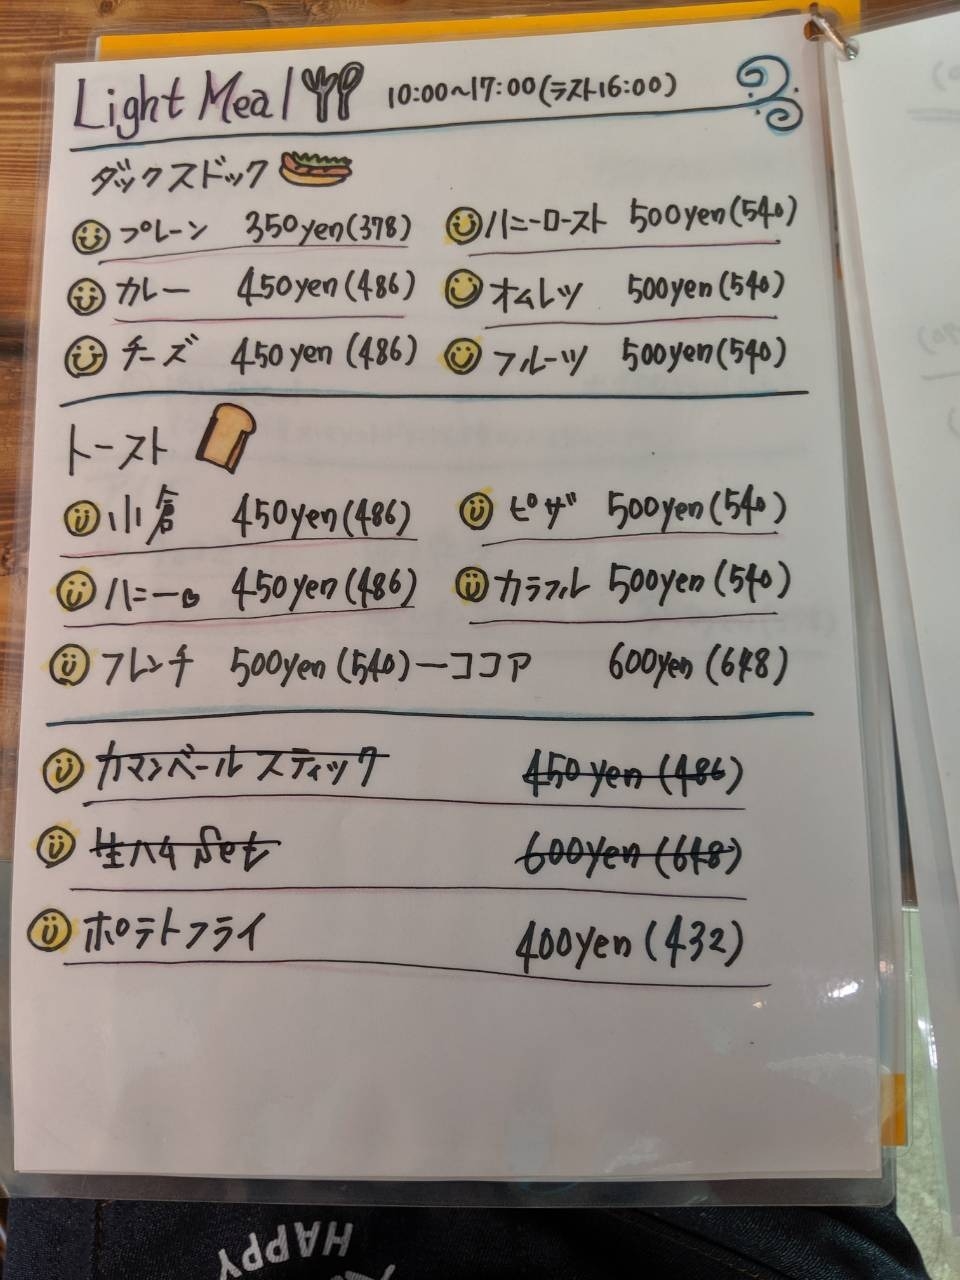 Light Meal 10:00~17:00(ラスト16:00)
ダックスドック
プレーン 350yen(378) ハニーロースト 500yen(540)
カレー 450yen(486) オムレツ 500yen(540)
チーズ 450yen(486) フルーツ 500yen(540)
トースト
小倉 450yen(486) ピザ 500yen(540)
ハニー 450yen(486) カラフル 500yen(540)
フレンチ 500yen(540)ーココア 600yen(648)
カマンベールスティック 450yen(486)
生ハム Set 600yen(648)
ポテトフライ 400yen(432)
HAPPY